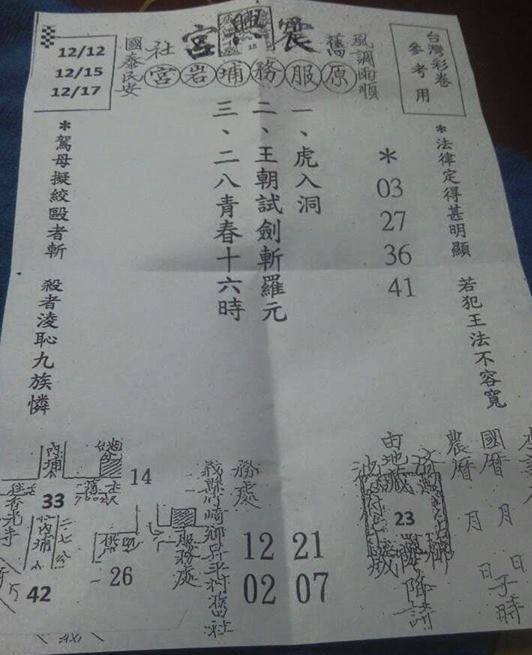 台灣彩卷
參考用
風調雨順
舊
震興宮
社
國泰民安
原服務埔岩宮
12/12
12/15
12/17
*法律定得甚明顯 若犯王法不容寬
*
03
27
36
41
一、虎入洞
二、王朝試劍斬羅元
三、二八青春十六時
*駕母擬絞毆者斬 殺者淩恥九族憐
國曆 月 日
農曆 月 日子時
由地藏
23
降請
務處
12 21
02 07
義縣竹崎鄉昇平村舊社
服務處
內埔
14
33
26
42